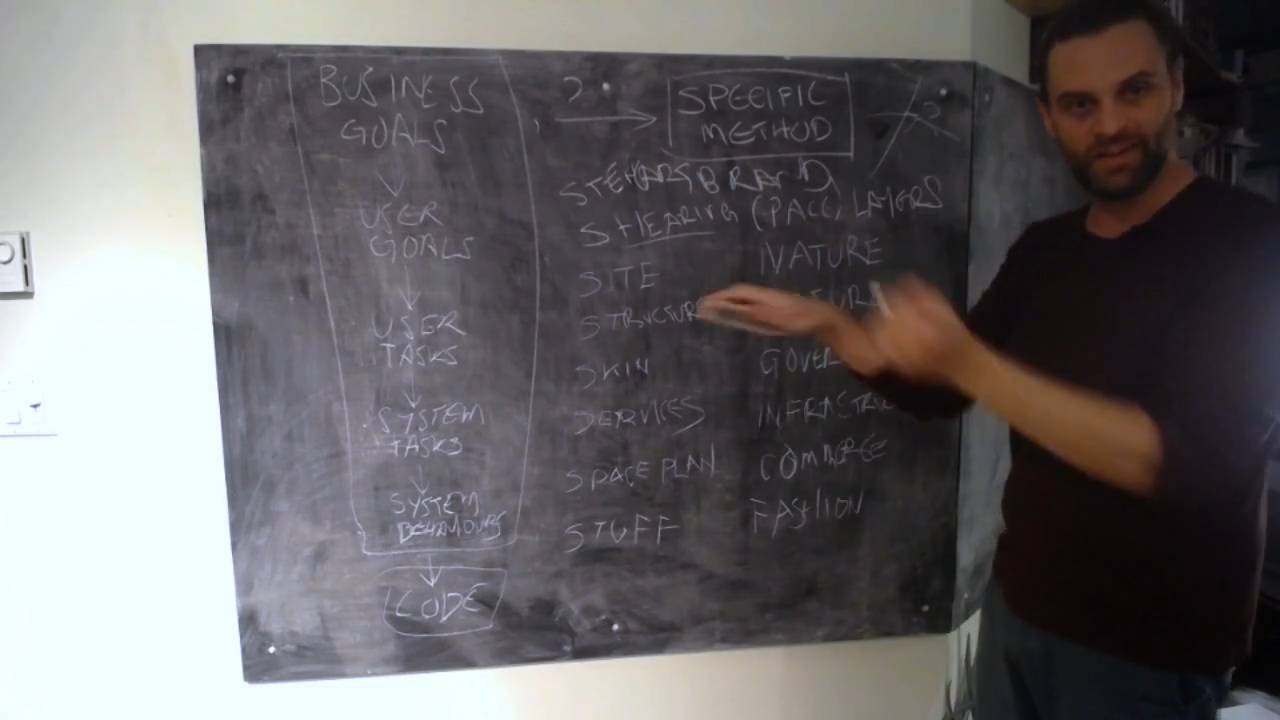 BUSINESS
GOALS
USER
GOALS
USER
TASKS
SYSTEM
TASKS
SYSTEM
BEHAVIOURS
CODE
?
SPECIFIC
METHOD
?
STEWART BRAND
SHEARING (PACE) LAYERS
SITE
STRUCTURE
SKIN
SERVICES
SPACE PLAN
STUFF
NATURE
COMMERCE
FASHION